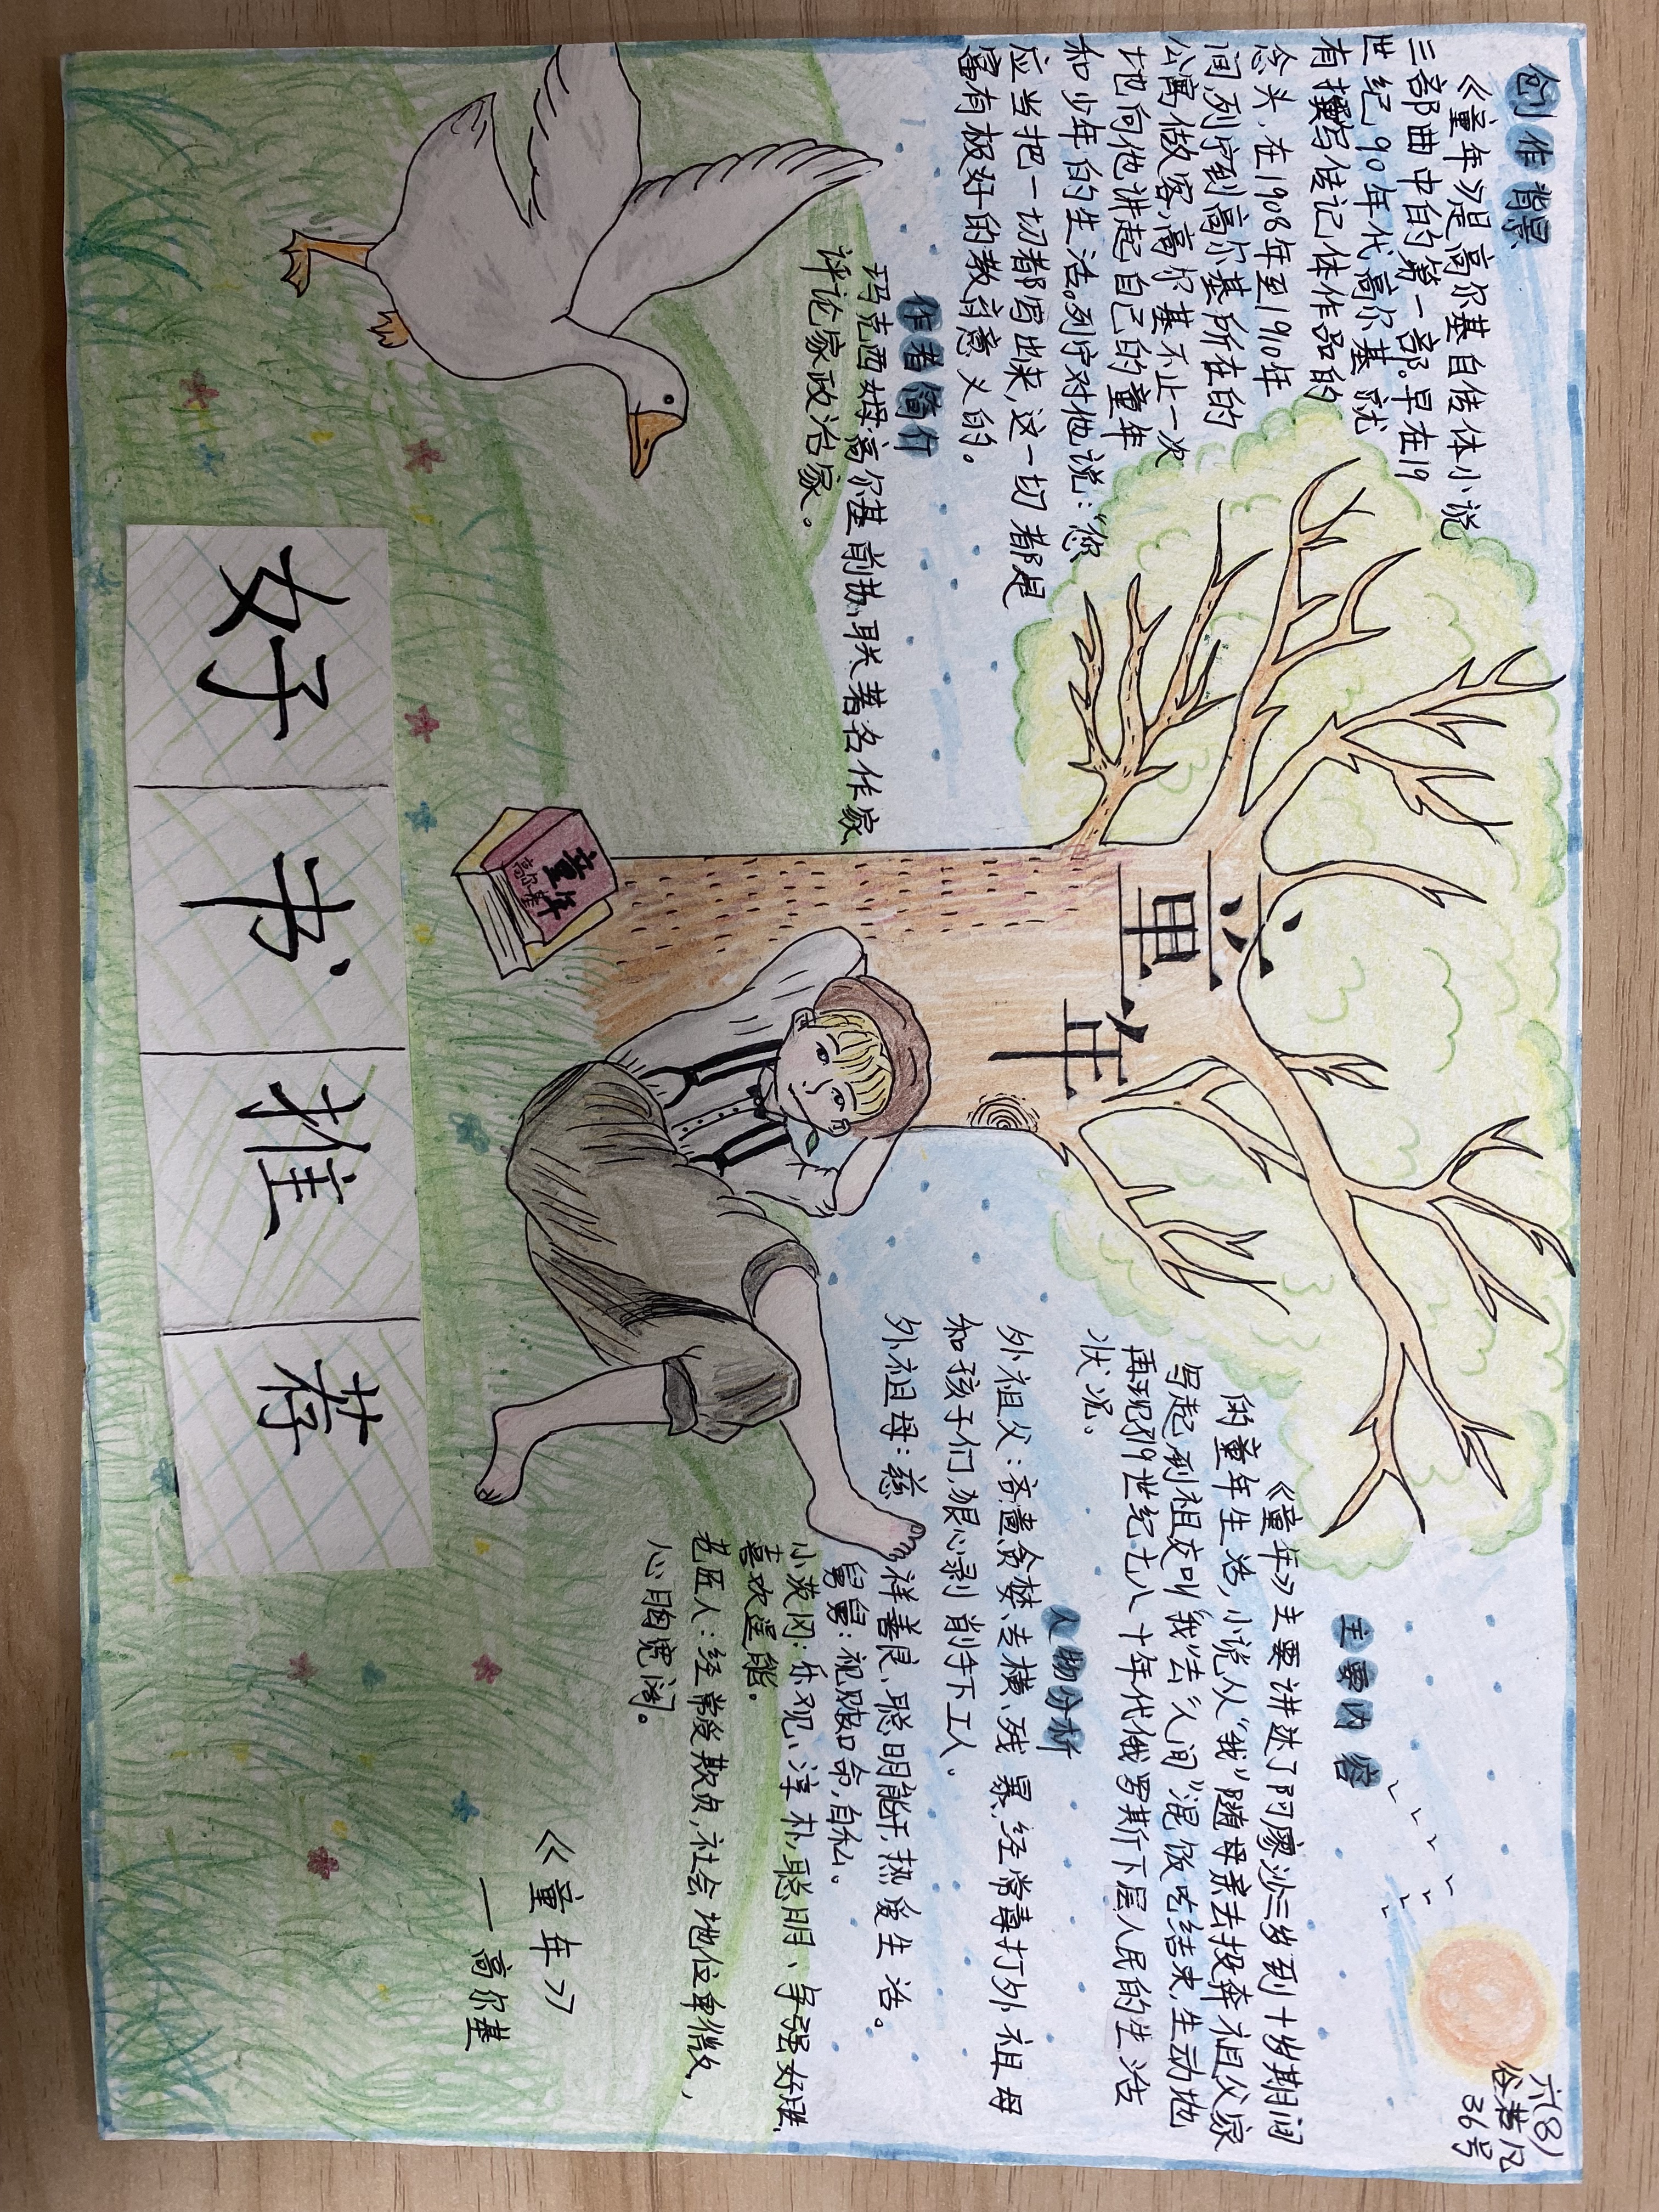 创作背景
《童年》是高尔基自传体小说
三部曲中的第一部。早在19
世纪90年代高尔基就
有撰写传记体作品的
念头,在1908年至1910年
间,列宁到高尔基所在的
公寓做客,高尔基不止一次
地向他讲起自己的童年
和少年的生活。列宁对他说:“您
应当把一切都写出来,这一切都是
富有极好的教育意义的。
作者简介
玛克西姆·高尔基,前苏联著名作家
评论家政治家。
童年
童年
高尔基
主要内容
《童年》主要讲述了阿廖沙三岁到十岁期间
的童年生活,小说从“我”随母亲去投奔祖父家
写起,到祖父叫“我”去“人间”混饭吃结束,生动地
再现了19世纪七八十年代俄罗斯下层人民的生活
状况。
人物分析
外祖父:吝啬贪婪、专横、残暴,经常毒打外祖母
和孩子们,狠心剥削手下工人。
外祖母:慈祥善良、聪明能干,热爱生活。
舅舅:视财如命,自私。
小茨冈:乐观、淳朴,聪明、争强好胜,
喜欢逞能。
老匠人:经常受欺负,社会地位卑微,
心胸宽阔。
《童年》
——高尔基
六(8)
36号
好书推荐